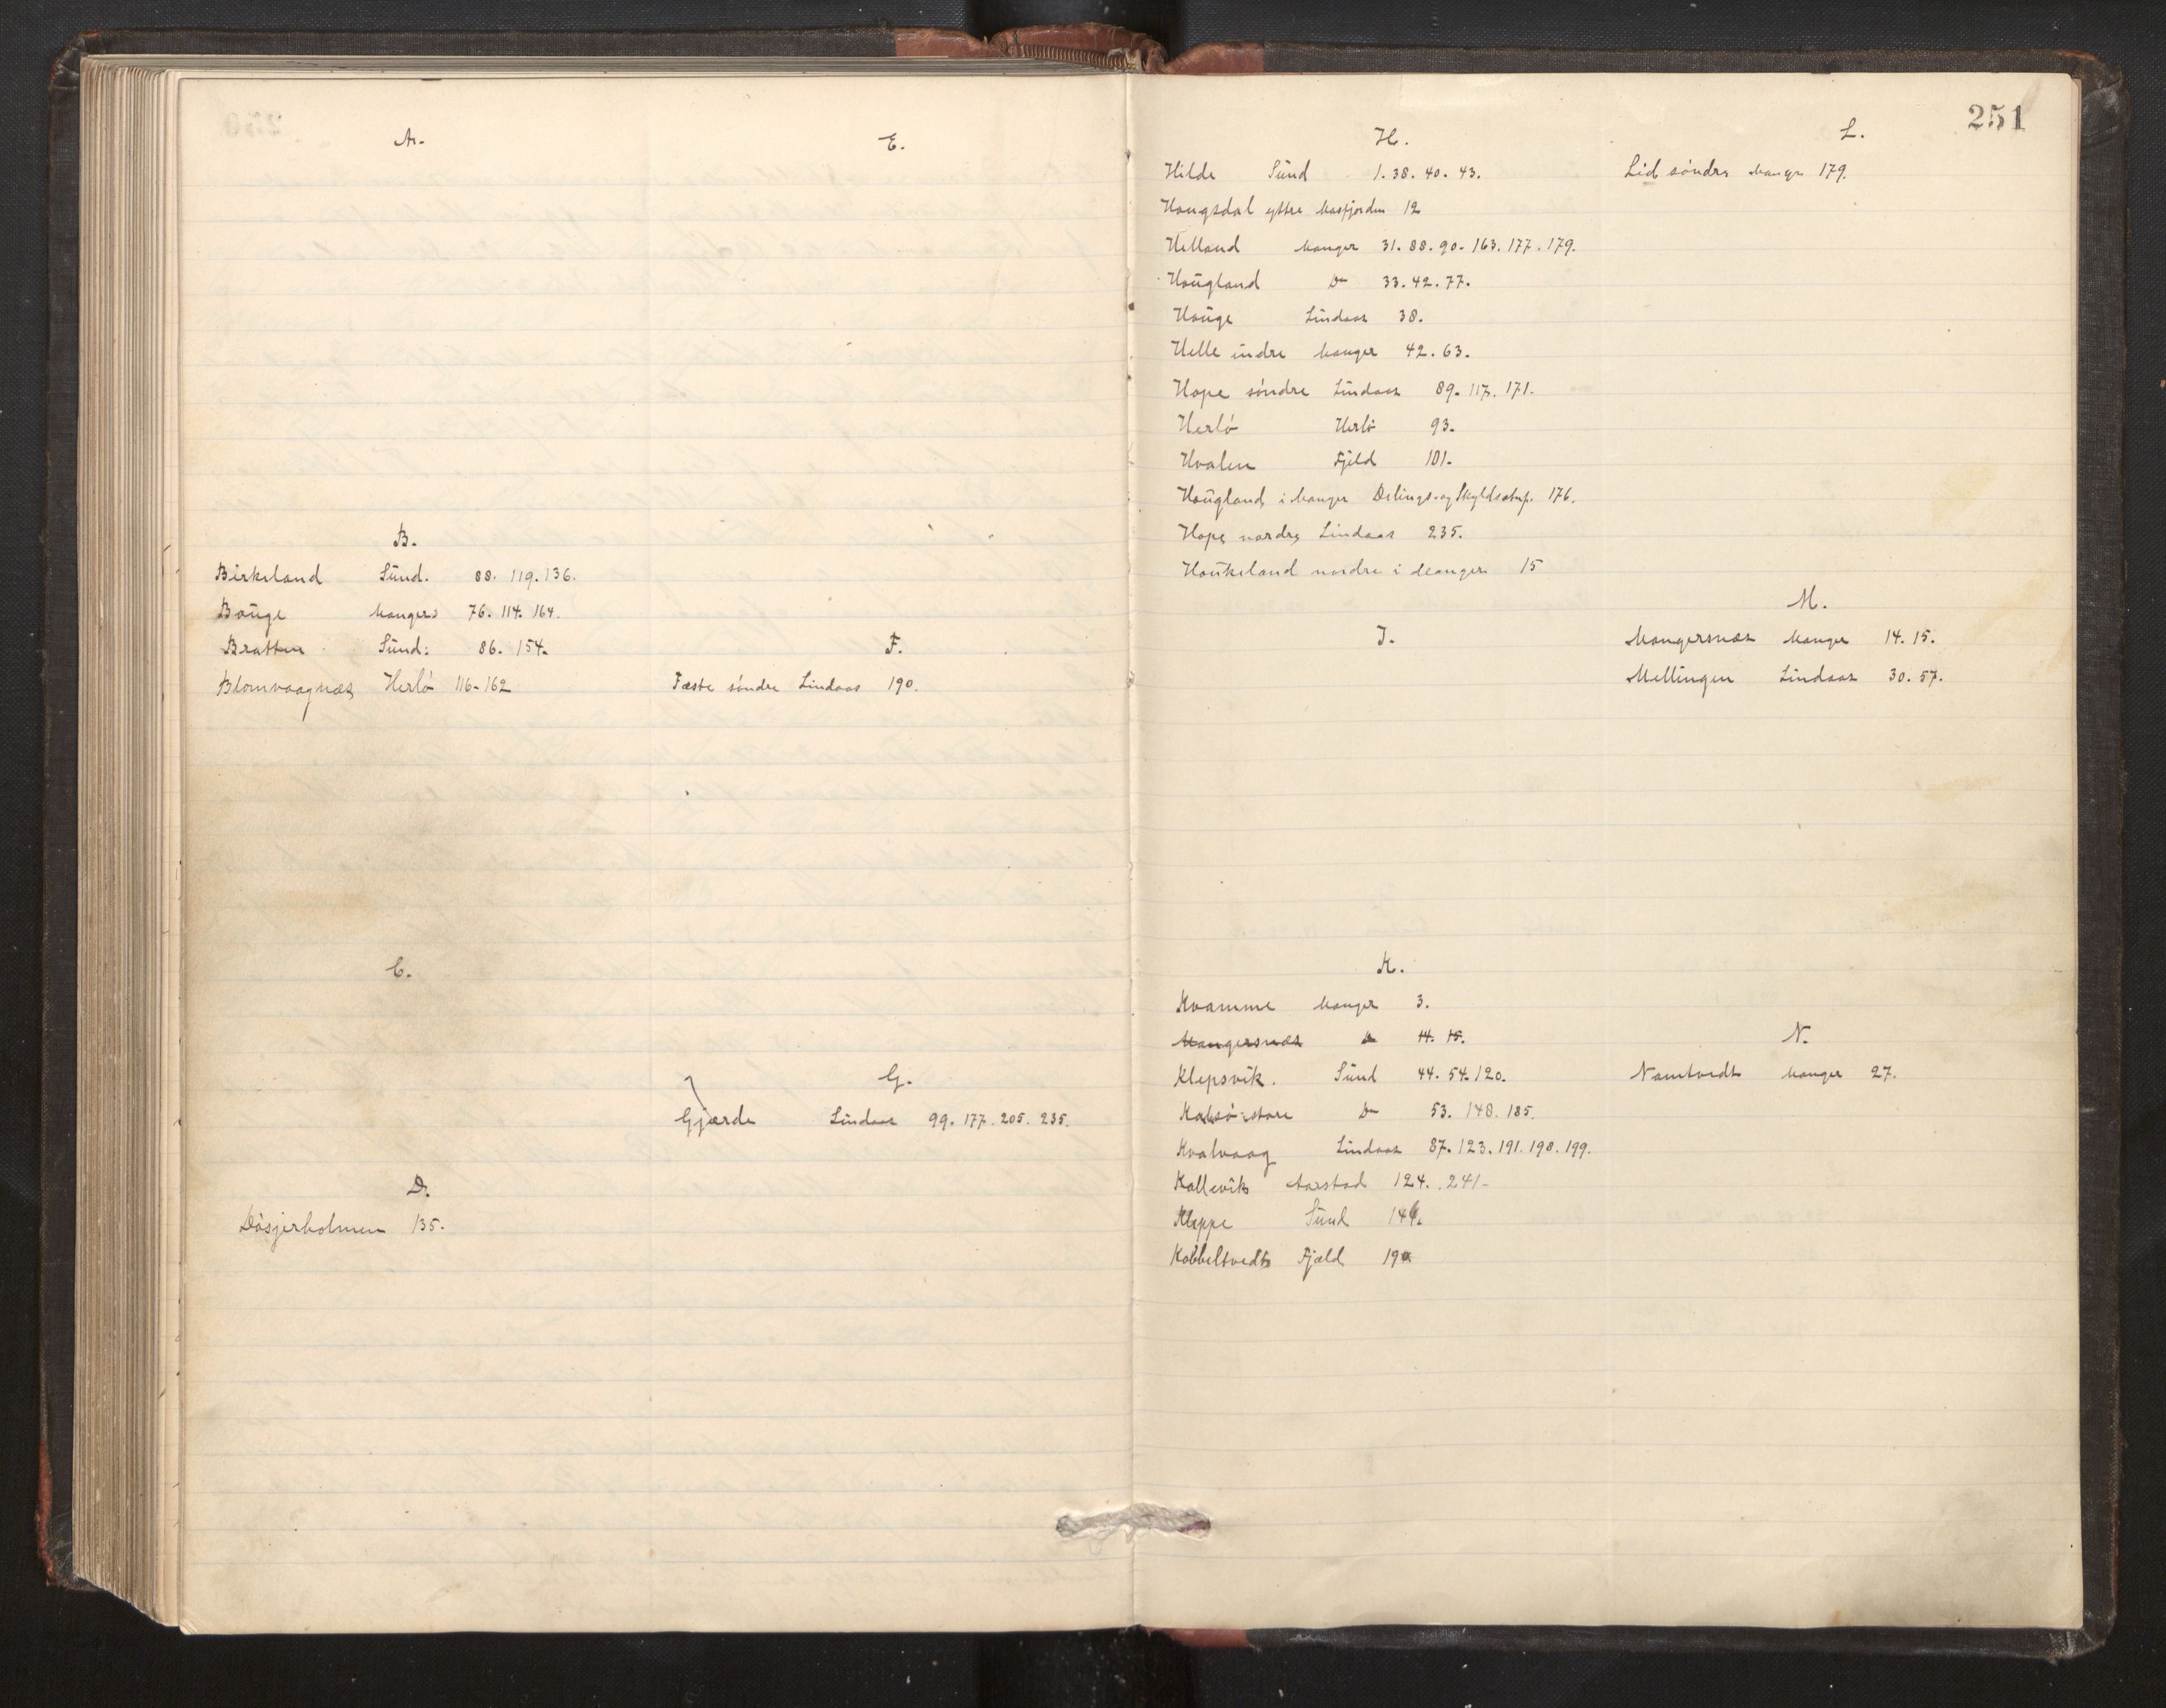 A.
B.
Birkeland Sund. 88. 119. 136.
Bauge Manger 76. 114. 164.
Bratten Sund. 86. 154.
Blomvaagnæs Herlö 116-162
C.
D.
Dösjerholmen 135.
E.
F.
Fæste söndre Lindaas 190.
G.
Gjærde Lindaas 99. 177. 205. 235.
251
H.
Hilde Sund 1. 38. 40. 43.
Haugsdal yttre Masfjorden 12
Helland Manger 31. 88. 90. 163. 177. 179.
Haugland Do 33. 42. 77.
Hauge Lindaas 38.
Helle indre Manger 42. 63.
Hope söndre Lindaas 89. 117. 171.
Herlö Herlö 93.
Hvalen Fjeld 101.
Haugland i Manger Delings- og Skyldsatnf. 176.
Hope nordre Lindaas 235.
Haukeland nordre i Manger 15
I.
K.
Kvamme Manger 3.
Mangersnæs Do 14. 15.
Klepsvik. Sund 44. 54. 120.
Kalsö store Do 53. 148. 185.
Kvalvaag Lindaas 87. 123. 191. 198. 199.
Kallevik Aarstad 124. 241-
Kleppe Sund
Kobbeltvedt Fjeld
L.
Lid söndre Manger 179.
M.
Mangersnæs Manger 14. 15.
Mellingen Lindaas 30. 57.
N.
Namtvedt Manger 27.